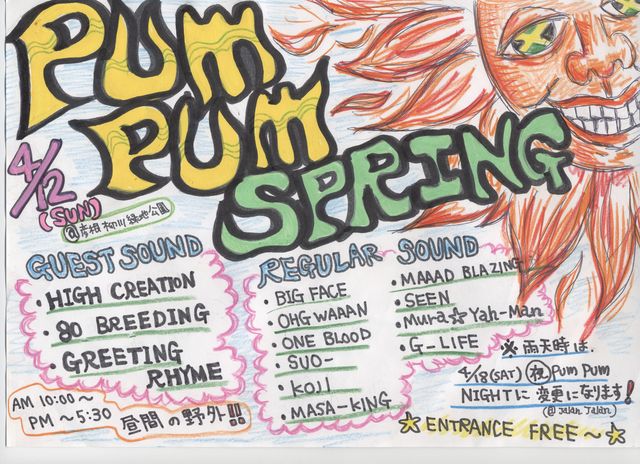 PUM
PUM
SPRING
4/12
(SUN)
@彦根 柳川緑地公園
GUEST SOUND
・HIGH CREATION
・80 BREEDING
・GREETING
RHYME
REGULAR SOUND
・BIG FACE
・OHG WAAAN
・ONE BLOOD
・SUO-
・KOJI
・MASA-KING
・MAAAD BLAZING
・SEEN
・Mura☆Yah-Man
・G-LIFE
AM 10:00～
PM～5:30
昼間の野外!!
※雨天時は.
4/18(SAT) ㊗ PUM PUM
NIGHTに変更になります!
(@jalan Jalan)
☆ENTRANCE FREE～☆